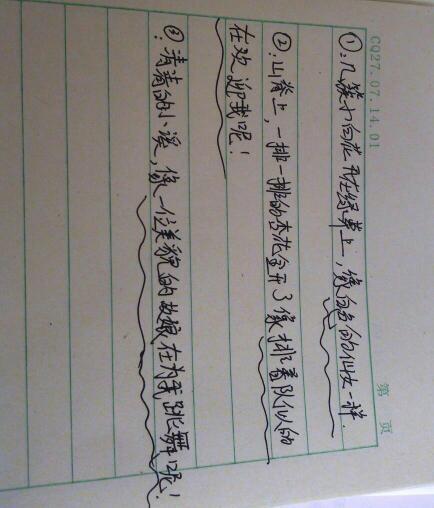 CQ27.07.14.01
第 页
①:几簇小白花开在绿草上,像白色的仙女一样.
②:山脊上,一排一排的杏花全开了像排着队似的
在欢迎我呢!
③:清清的小溪,像一位美貌的姑娘在为我跳舞呢!